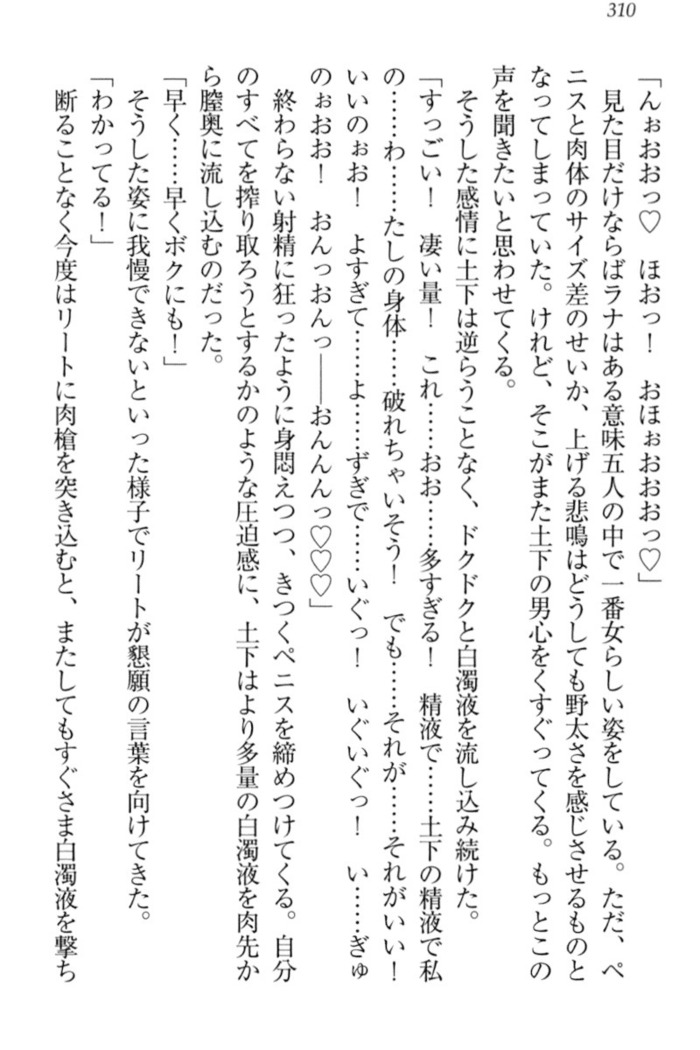 310
「んぉおおっ♡　ほおっ！　おほぉおおおっ♡」
　見た目だけならばラナはある意味五人の中で一番女らしい姿をしている。ただ、ペ
ニスと肉体のサイズ差のせいか、上げる悲鳴はどうしても野太さを感じさせるものと
なってしまっていた。けれど、そこがまた土下の男心をくすぐってくる。もっとこの
声を聞きたいと思わせてくる。
　そうした感情に土下は逆らうことなく、ドクドクと白濁液を流し込み続けた。
「すっごい！　凄い量！　これ……おお……多すぎる！　精液で……土下の精液で私
の……わ……たしの身体……破れちゃいそう！　でも……それが……それがいい！
いいのぉお！　よすぎて……よ……ずぎで……いぐっ！　いぐいぐっ！　い……ぎゅ
のぉおお！　おんっおんっ――おんんんっ♡♡♡」
　終わらない射精に狂ったように身悶えつつ、きつくペニスを締めつけてくる。自分
のすべてを搾り取ろうとするかのような圧迫感に、土下はより多量の白濁液を肉先か
ら膣奥に流し込むのだった。
「早く……早くボクにも！」
　そうした姿に我慢できないといった様子でリートが懇願の言葉を向けてきた。
「わかってる！」
　断ることなく今度はリートに肉槍を突き込むと、またしてもすぐさま白濁液を撃ち